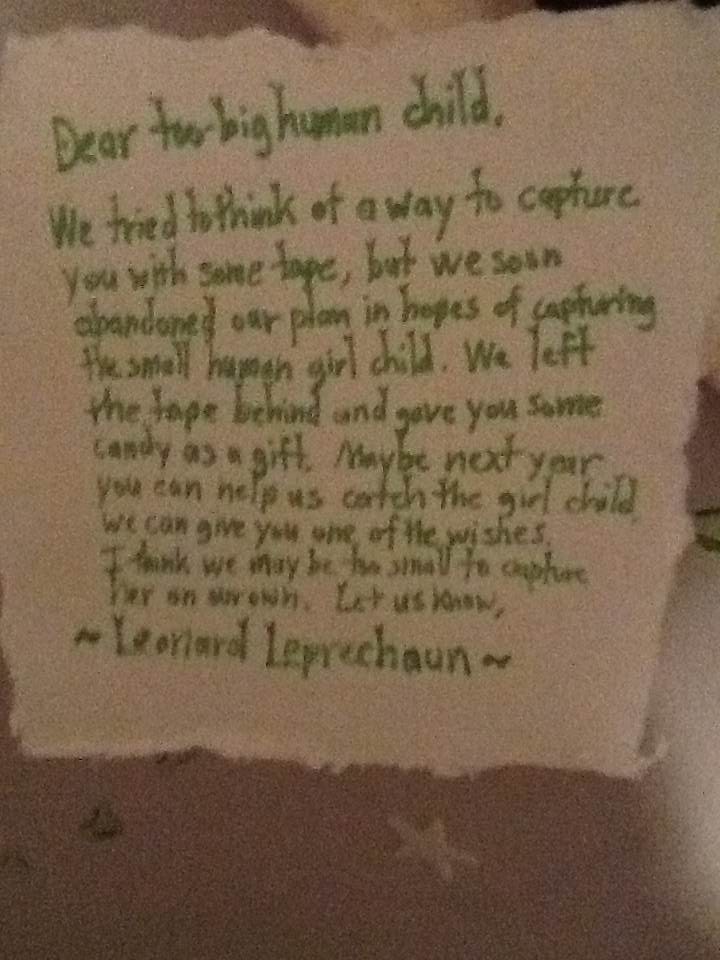 Dear too-big human child.
We tried to think of a way to capture
you with some tape, but we soon
abandoned our plan in hopes of capturing
the small human girl child. We left
the tape behind and gave you some
candy as a gift. Maybe next year
you can help us catch the girl child
We can give you one of the wishes.
I think we may be too small to capture
her on our own. Let us know,
~ Leonard Leprechaun ~